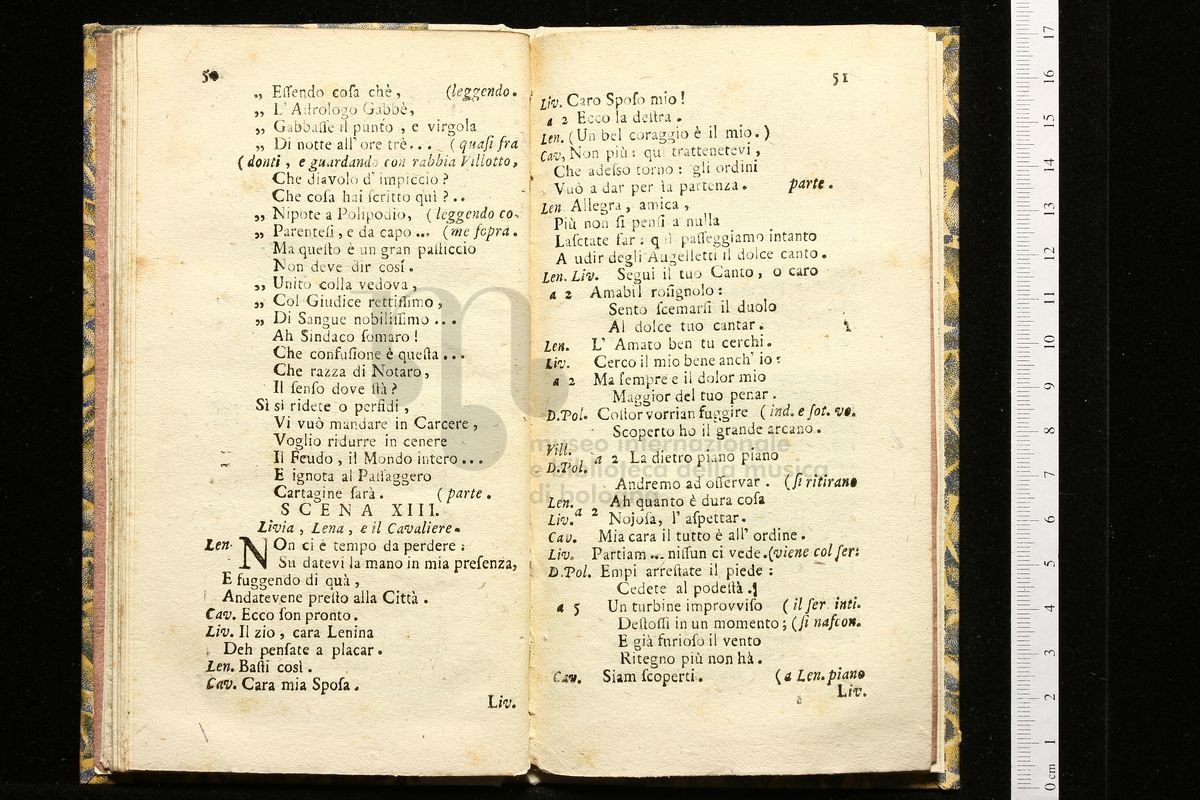 50
„ Eſſendo coſa chè, (leggendo.
„ L' Aſtrologo Gabbè,
„ Gabbaſſe il punto, e virgola
„ Di notte all' ore trè... (quaſi fra
(donti, e guardando con rabbia Villotto,
Che diavolo d' impiccio?
Che coſa hai ſcritto quì?..
„ Nipote a Polipodio, (leggendo co-
„ Parenteſi, e da capo... (me ſopra.
Ma queſto è un gran paſticcio
Non deve dir così.
„ Unito colla vedova,
„ Col Giudice rettiſſimo,
„ Di Sangue nobiliſſimo...
Ah Sindaco ſomaro!
Che confuſione è queſta...
Che razza di Notaro,
Il ſenſo dove ſtà?
Sì si ridete o perfidi,
Vi vuò mandare in Carcere,
Voglio ridurre in cenere
Il Feudo, il Mondo intero...
E ignota al Paſſaggero
Cartagine farà. (parte.
SCENA XIII.
Livia, Lena, e il Cavaliere.
Len. NOn ci è tempo da perdere:
Su datevi la mano in mia preſenza,
E fuggendo di quà,
Andatevene preſto alla Città.
Cav. Ecco ſon pronto.
Liv. Il zio, cara Lenina
Deh penſate a placar.
Len. Baſti così.
Cav. Cara mia Spoſa.
Liv.
51
Liv. Caro Spoſo mio!
a 2 Ecco la deſtra.
Len. (Un bel coraggio è il mio.)
Cav, Non più: quì trattenetevi,
Che adeſſo torno: gli ordini
Vuò a dar per la partenza. parte.
Len Allegra, amica,
Più non ſi penſi a nulla
Laſctate far: quì paſſeggiamo intanto
A udir degli Augelletti il dolce canto.
Len. Liv. Segui il tuo Canto, o caro
a 2 Amabil roſignolo:
Sento ſcemarſi il duolo
Al dolce tuo cantar.
Len. L' Amato ben tu cerchi.
Liv. Cerco il mio bene anch' io:
a 2 Ma ſempre e il dolor mio
Maggior del tuo penar.
D.Pol. Coſtor vorrian fuggire (ind. e ſot. vo.
Scoperto ho il grande arcano.
Vill.
D.Pol. a 2 La dietro piano piano
Andremo ad oſſervar. (ſi ritirano
Len.
Liv. a 2 Ah quanto è dura coſa
Nojoſa, l' aſpettar.
Cav. Mia cara il tutto è all' ordine.
Liv. Partiam... niſſun ci vede.(viene col ſer:
D.Pol. Empi arreſtate il piede:
Cedete al podeſtà.
a 5 Un turbine improvviſo (il ſer. inti.
Deſtoſſi in un momento; (ſi naſcon.
E già furioſo il vento
Ritegno più non hà.
Cav. Siam ſcoperti. (a Len. piano
Liv.
museo internazionale
e biblioteca della musica
di bologna
0 cm 1 2 3 4 5 6 7 8 9 10 11 12 13 14 15 16 17